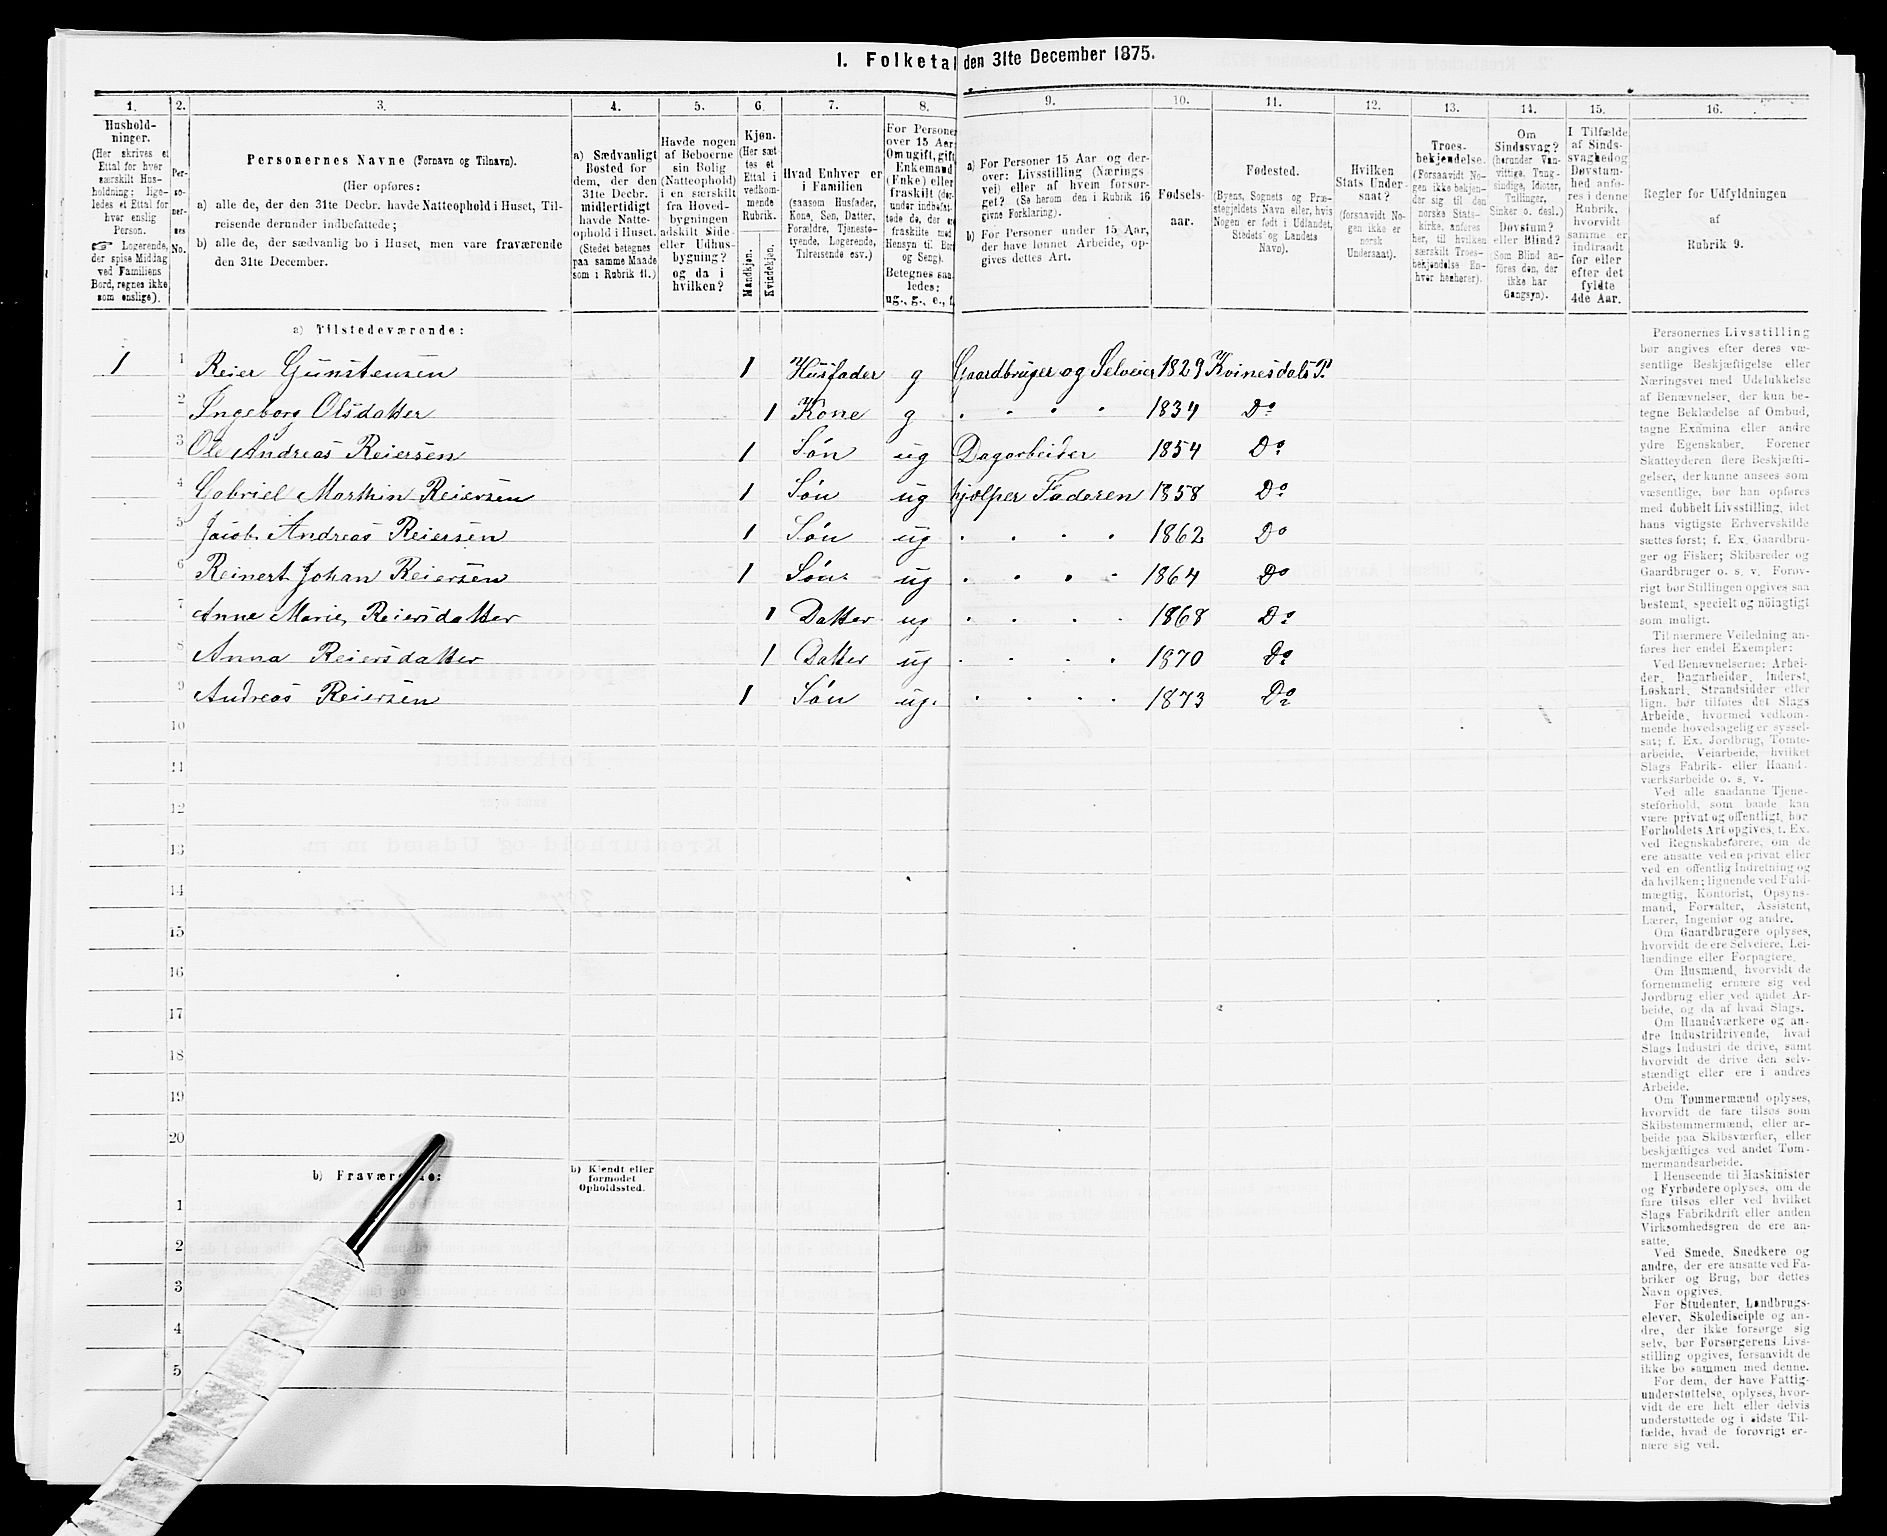 1. Folketal den 31te December 1875.
1. 2. 3. 4. 5. 6. 7. 8. 9. 10. 11. 12. 13. 14. 15. 16.
Hushold-
ninger.
(Her skrives et
Ettal for hver
særskilt Hus-
holdning; lige-
ledes et Ettal for
hver enslig
Person.
☞ Logerende,
der spise Middag
ved Familiens
Bord, regnes ikke
som enslige).
Per-
so-
ner-
nes
No.
Personernes Navne (Fornavn og Tilnavn).
(Her opføres:
a) alle de, der den 31te Decbr. havde Natteophold i Huset, Til-
reisende derunder indbefattede;
b) alle de, der sædvanlig bo i Huset, men vare fraværende
den 31te December.
a) Sædvanligt
Bosted for
dem, der den
31te Decbr.
midlertidigt
havde Natte-
ophold i Huset.
(Stedet betegnes
paa samme Maade
som i Rubrik 11.)
Havde nogen
af Beboerne
sin Bolig
(Natteophold)
i en særskilt
fra Hoved-
bygningen
adskilt Side-
eller Udhus-
bygning?
og da i
hvilken?
Kjøn.
(Her sæt-
tes et
Ettal i
vedkom-
mende
Rubrik.
Mandkjøn.
Kvindekjøn.
Hvad Enhver er
i Familien
(saasom Husfader,
Kone, Søn, Datter,
Forældre, Tjeneste-
tyende, Logerende,
Tilreisende osv.)
For Personer
over 15 Aar:
Om ugift, gift,
Enkemand
(Enke) eller
fraskilt (der-
under indbefat-
tede de, der ere
fraskilte med
Hensyn til Bord
og Seng).
Betegnes saa-
ledes:
ug., g., e., f.
a) For Personer 15 Aar og der-
over: Livsstilling (Nærings-
vei) eller af hvem forsør-
get? (Se herom den i Rubrik 16
givne Forklaring).
b) For Personer under 15 Aar,
der have lønnet Arbeide, op-
gives dettes Art.
Fødsels-
aar.
Fødested.
(Byens, Sognets og Præ-
stegjeldets Navn eller, hvis
Nogen er født i Udlandet,
Stedets og Landets
Navn).
Hvilken
Stats Under-
saat?
(forsaavidt No-
gen ikke er
norsk
Undersaat).
Troes-
bekjendelse.
(Forsaavidt No-
gen ikke bekjen-
der sig til den
norske Stats-
kirke, anføres
her, til hvilken
særskilt Troes-
bekjendelse En-
hver henhører).
Om
Sindssvag?
(herunder Van-
vittige, Tung-
sindige, Idioter,
Tullinger,
Sinker o. desl.)
Døvstum?
eller Blind?
(Som Blind an-
føres den, der
ikke har
Gangsyn).
I Tilfælde
af Sinds-
svaghed og
Døvstum-
hed anfø-
res i denne
Rubrik,
hvorvidt
samme er
indtraadt
før eller
efter det
fyldte
4de Aar.
Regler for Udfyldningen
af
Rubrik 9.
a) Tilstedeværende:
1 1 Reier Gunstensen 1 Husfader g Gaardbruger og Selveier 1829 Kvinesdals P.
2 Ingeborg Olsdatter 1 Kone g " " " " 1834 Do
3 Ole Andreas Reiersen 1 Søn ug Dagarbeider 1854 Do
4 Gabriel Marthin Reiersen 1 Søn ug hjælper Faderen 1858 Do
5 Jacob Andreas Reiersen 1 Søn ug " " " " 1862 Do
6 Reinert Johan Reiersen 1 Søn ug " " " " 1864 Do
7 Anne Marie Reiersdatter 1 Datter ug " " " " 1868 Do
8 Anna Reiersdatter 1 Datter ug " " " " 1870 Do
9 Andreas Reiersen 1 Søn ug. " " " " 1873 Do
10
11
12
13
14
15
16
17
18
19
20
b) Fraværende:
b) Kjendt eller
formodet
Opholdssted.
1
2
3
4
5
Personernes Livsstilling
bør angives efter deres væ-
sentlige Beskjæftigelse eller
Næringsvei med Udelukkelse
af Benævnelser, der kun be-
tegne Beklædelse af Ombud,
tagne Examina eller andre
ydre Egenskaber. Forener
Skatteyderen flere Beskjæfti-
gelser, der kunne ansees som
væsentlige, bør han opføres
med dobbelt Livsstilling, idet
hans vigtigste Erhvervskilde
sættes først; f. Ex. Gaardbru-
ger og Fisker; Skibsreder og
Gaardbruger o. s. v. Forøv-
rigt bør Stillingen opgives saa
bestemt, specielt og nøiagtigt
som muligt.
Til nærmere Veiledning an-
føres her endel Exempler:
Ved Benævnelserne: Arbei-
der, Dagarbeider, Inderst,
Løskarl, Strandsidder eller
lign. bør tilføies det Slags
Arbeide, hvormed vedkom-
mende hovedsagelig er syssel-
sat; f. Ex. Jordbrug, Tomte-
arbeide, Veiarbeide, hvilket
Slags Fabrik- eller Haand-
værksarbeide o. s. v.
Ved alle saadanne Tjene-
steforhold, som baade kan
være privat og offentligt, bør
Forholdets Art opgives, f. Ex.
ved Regnskabsførere, om de
ere ansatte ved en privat eller
ved en offentlig Indretning og
da hvilken; lignende ved Fuld-
mægtig, Kontorist, Opsyns-
mand, Forvalter, Assistent,
Lærer, Ingeniør og andre.
Om Gaardbrugere oplyses,
hvorvidt de ere Selveiere, Lei-
lændinge eller Forpagtere.
Om Husmænd, hvorvidt de
fornemmelig ernære sig ved
Jordbrug eller ved andet Ar-
beide, og da af hvad Slags.
Om Haandværkere og an-
dre Industridrivende, hvad
Slags Industri de drive, samt
hvorvidt de drive den selv-
stændigt eller ere i andres
Arbeide.
Om Tømmermænd oplyses,
hvorvidt de fare tilsøs som
Skibstømmermænd, eller ar-
beide paa Skibsværfter, eller
beskjæftiges ved andet Tøm-
mermandsarbeide.
I Henseende til Maskinister
og Fyrbødere oplyses, om de
fare tilsøs eller ved hvilket
Slags Fabrikdrift eller anden
Virksomhedsgren de ere an-
satte.
Ved Smede, Snedkere og
andre, der ere ansatte ved Fa-
briker og Brug, bør dettes
Navn opgives.
For Studenter, Landbrugs-
elever, Skoledisciple og an-
dre, der ikke forsørge sig
selv, bør Forsørgerens Livs-
stilling opgives, forsaavidt de
ikke bo sammen med denne.
For dem, der have Fattig-
understøttelse, oplyses, hvor-
vidt de ere helt eller delvis
understøttede og i sidste Til-
fælde, hvad de forøvrigt er-
nære sig ved.